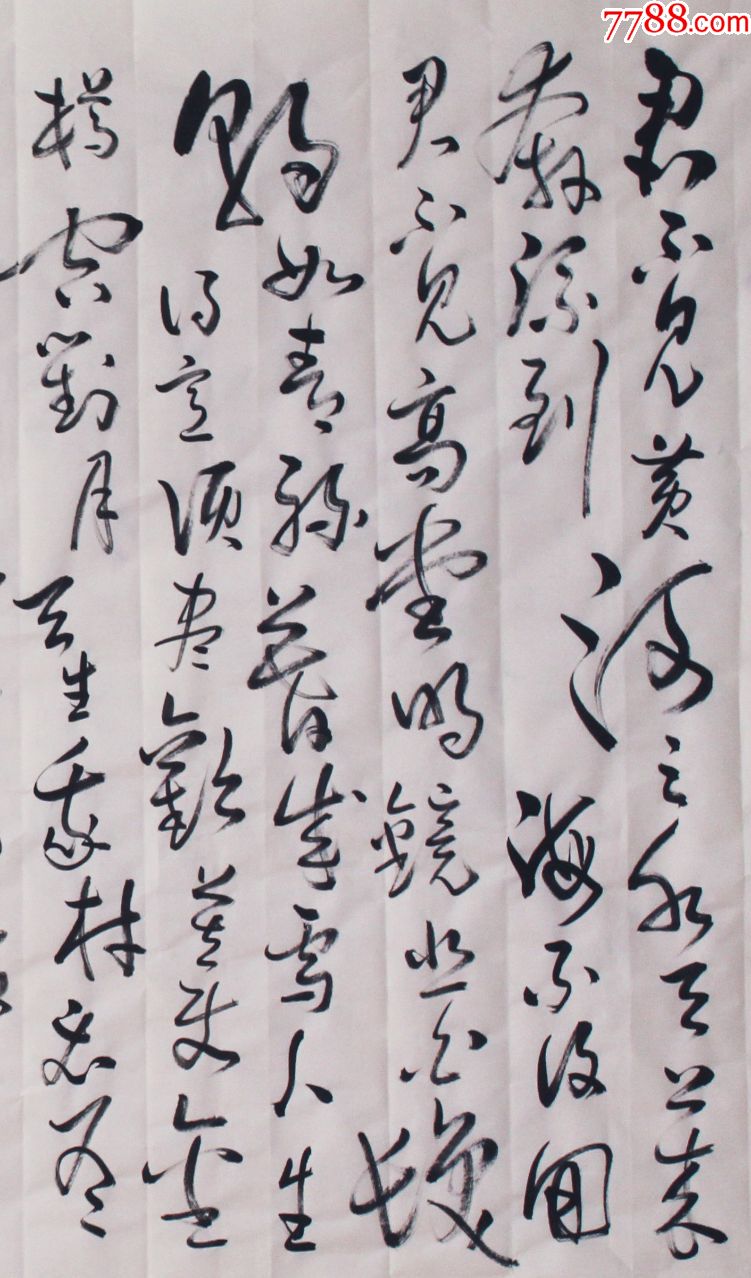 7788.com
君不見黃河之水天上來
奔流到海不復回
君不見高堂明鏡悲白髮
朝如青絲暮成雪人生
得意須尽歡莫使金
樽空對月天生我材必有